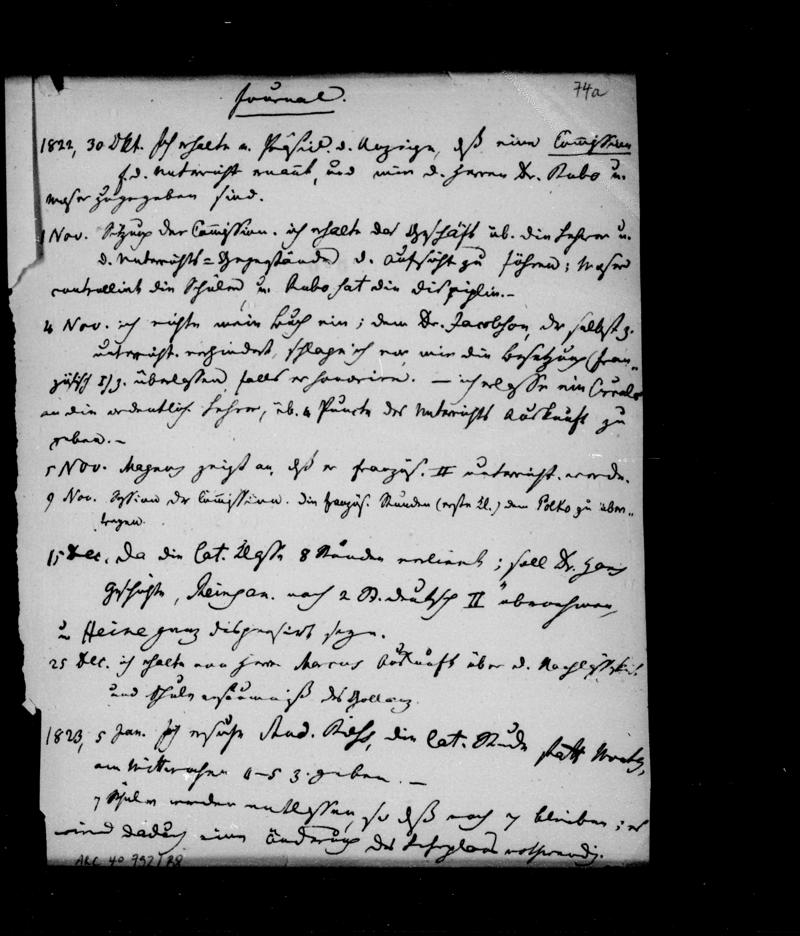 74a
Journal.
1822, 30 Okt. Ich erhalte v. Präsid. d. Anzeige, dß eine Commission
f. d. Unterricht ernannt, und mir d. Herren Dr. Rubo u.
Moser zugegeben sind.
1 Nov. Sitzung der Commission. ich erhalte das Geschäft üb. die Lehrer u.
d. Unterrichts=Gegenstände d. Aufsicht zu führen; Moser
controllirt die Schüler u. Rubo hat die Disziplin.-
4 Nov. ich richte mein Buch ein; dem Dr. Jacobson, der selbst z.
unterricht. verhindert, schlage ich vor, mir die Besetzung (fran-
zösisch I) z. überlassen, falls er honorire. — ich erlasse ein Circular
an die ordentlich. Lehrer, üb. 4 Puncte des Unterrichts Auskunft zu
geben.-
5 Nov. Magnus zeigt an, dß er französ. II unterricht. werde.
9 Nov. Session der Commission. die französ. Stunden (erste Kl.) dem Polko zu über-
tragen.
15 Dec. Da die lat. Klasse 8 Stunden verliert; soll Dr. Gans
Geschichte, noch 2 St. deutsch II übernehmen,
u. Heine ganz dispensirt seyn.
25 Dec. ich erhalte von Herrn Marcus Auskunft über d. Nachlässigkeit
und Schulversäumniß des Gollanz.
1823, 5 Jan. Ich ersuche Stud. die lat. Stunde statt
am Mittwochen 4-5 z. geben. —
7 Schüler werden entlassen, so dß noch 7 bleiben; es
wird dadurch eine Änderung des Lehrplans nothwendig.
ARC 40 792/B8